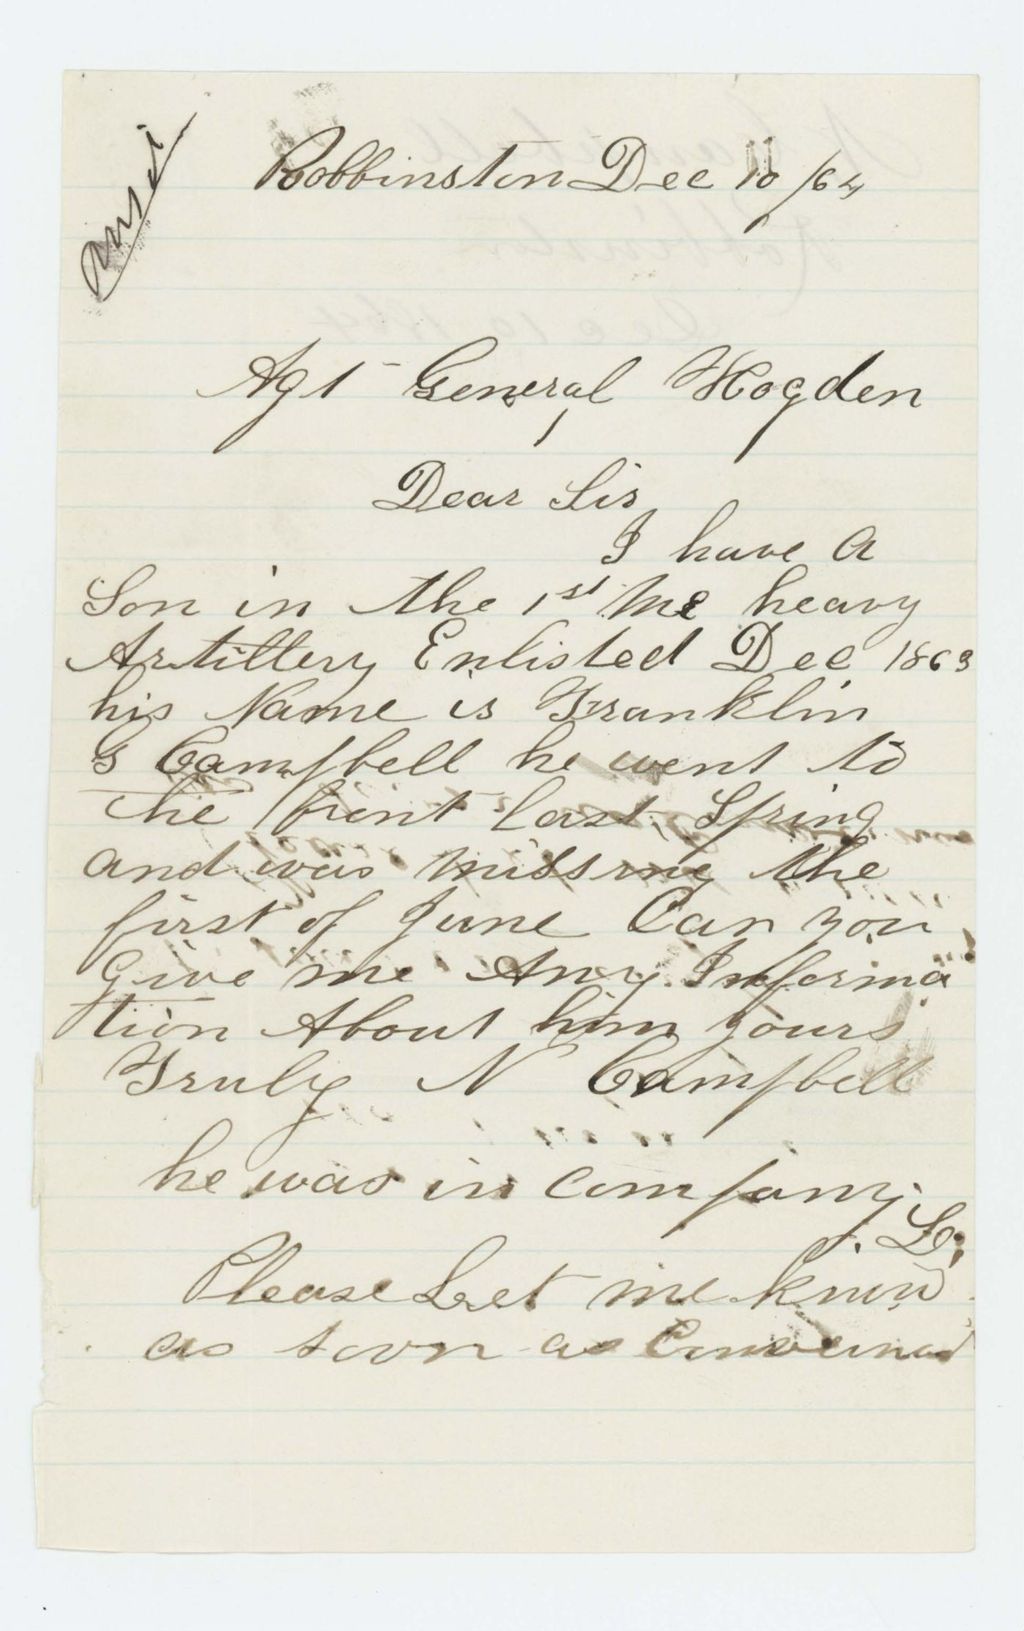 ansd
Robbinston Dec 10 /64
Agt General Hogden
Dear Sir
I have A
Son in the 1st Me heavy
Artillery Enlisted Dec 1863
his Name is Franklin
G Campbell he went to
the front last Spring
and was missing the
first of June Can you
Give me Any Informa
tion About him yours
Truly N Campbell
he was in Company
L,
Please Let me know
as soon as